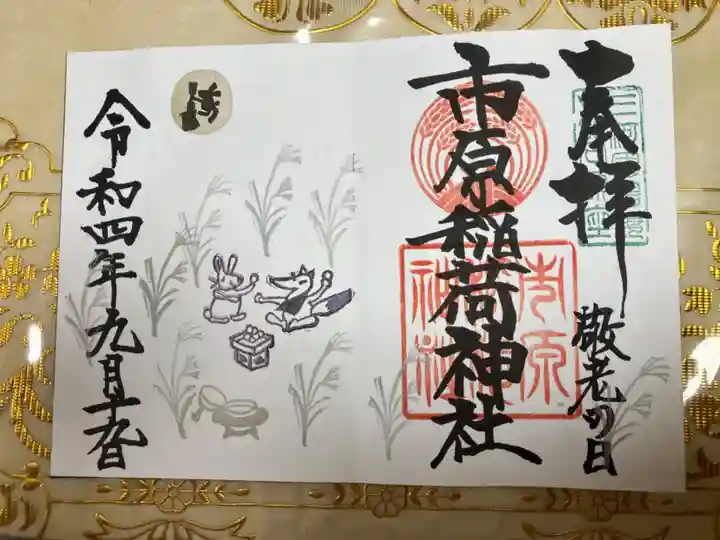 奉拝
敬老の日
市原稲荷神社
市原
令和四年九月十九日